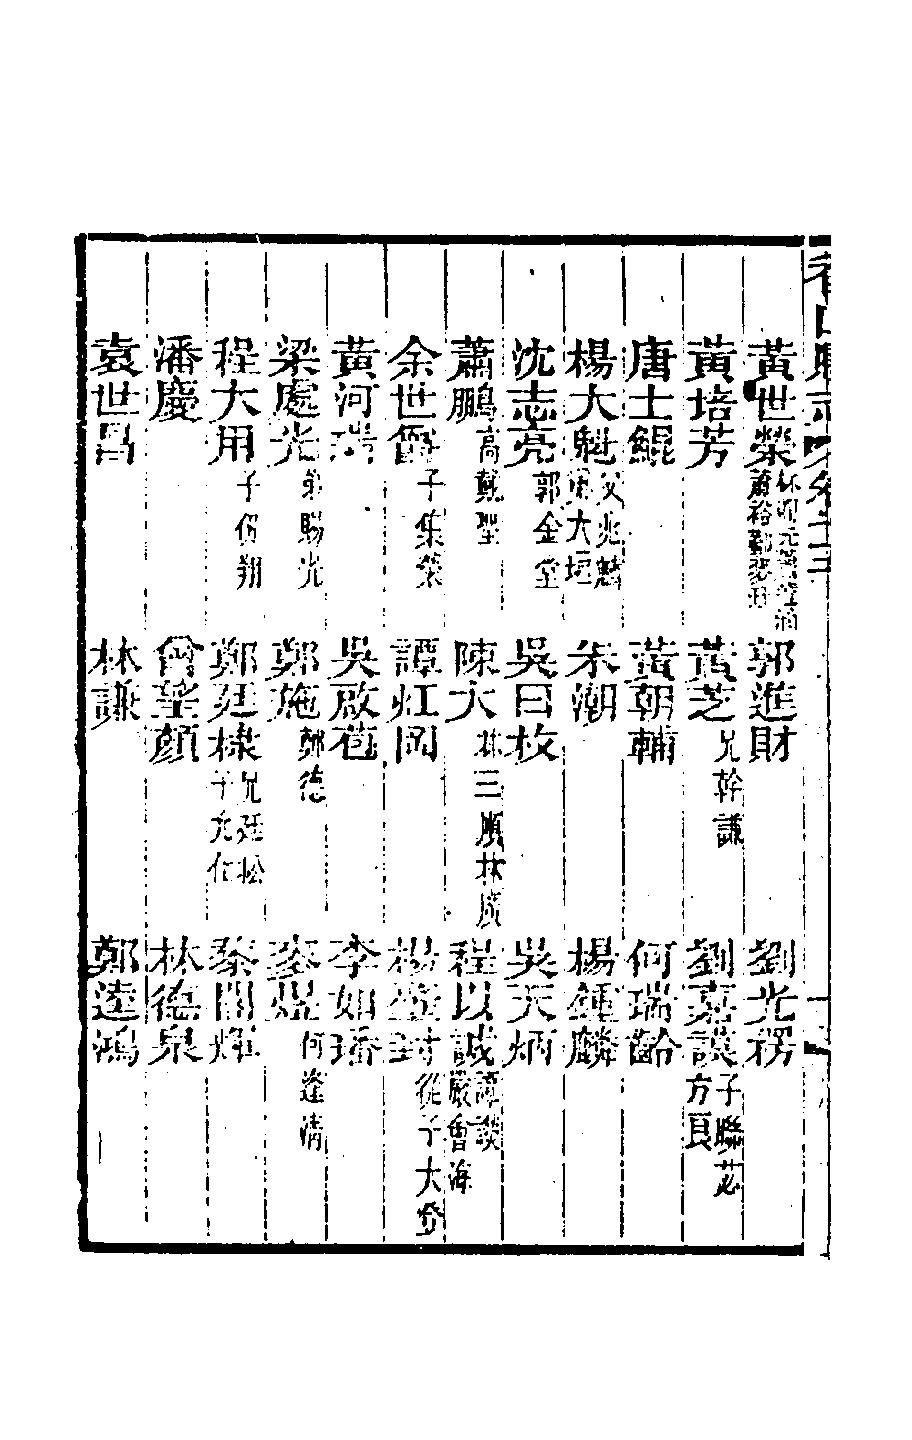 黃世榮 郭進財 劉光楞
黃培芳 黃芝兄幹謙 劉嘉謨子聯芯方頁
唐士鯤 黃朝輔 何瑞齡
楊大魁父兆麟大垣 朱潮 楊鍾麟
沈志亮郭金堂 吳日枚 吳天炳
蕭鵬高戴聖 陳大林三順林廣 程以誠譚談嚴會海
余世爵子集榮 譚灴岡 楊封從子大發
黃河瑞 吳啟苞 李如璠
梁處光弟賜光 鄭施鄭德 麥煜何逢清
程大用子佰翔 鄭廷棣兄廷松子允仁 黎閣輝
潘慶 曾望顏 林德泉
袁世昌 林謙 鄭逵鴻